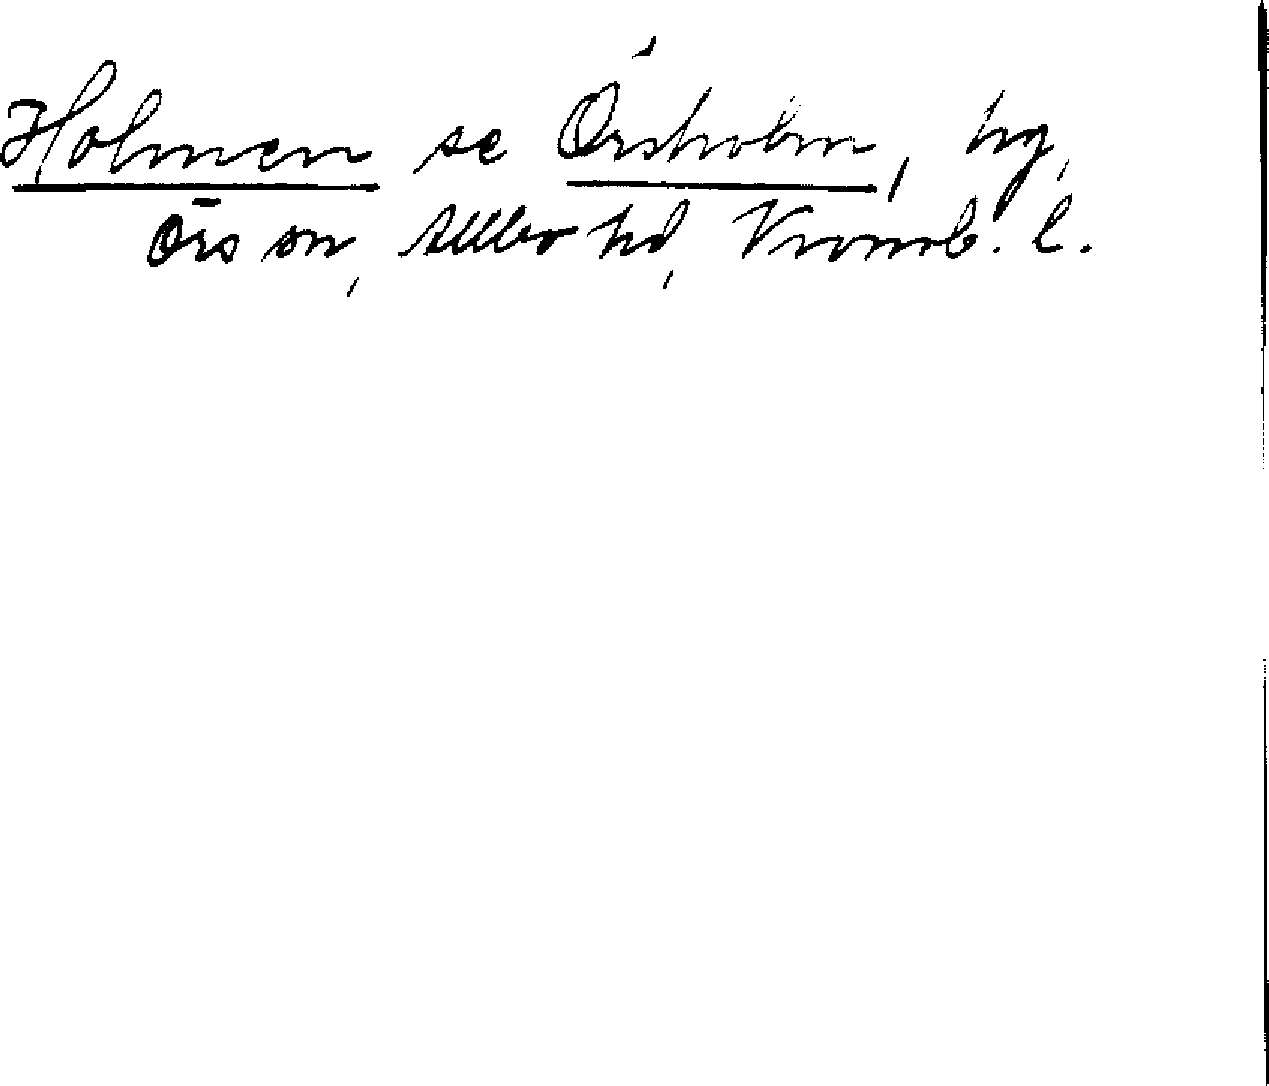 Holmen se Örsholm, hg,
Örs sn, Allbo hd, Kronob. l.